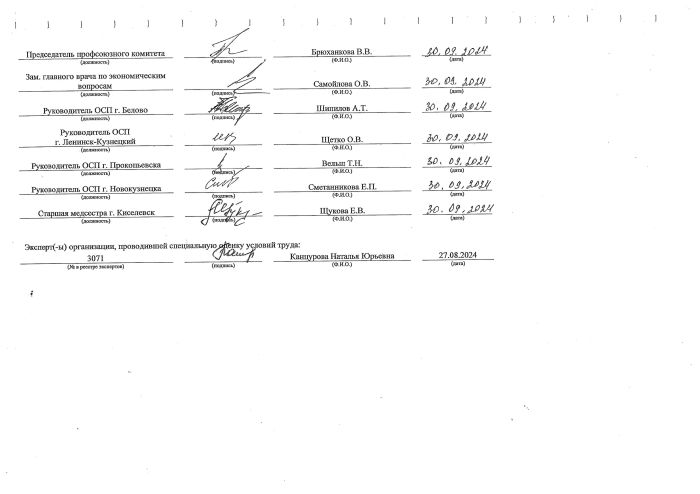 Председатель профсоюзного комитета Брюханкова В.В. 30.09.2024
(должность) (подпись) (Ф.И.О.) (дата)
Зам. главного врача по экономическим
вопросам Самойлова О.В. 30.09.2024
(должность) (подпись) (Ф.И.О.) (дата)
Руководитель ОСП г. Белово Шипилов А.Т. 30.09.2024
(должность) (подпись) (Ф.И.О.) (дата)
Руководитель ОСП
г. Ленинск-Кузнецкий Щетко О.В. 30.09.2024
(должность) (подпись) (Ф.И.О.) (дата)
Руководитель ОСП г. Прокопьевска Велыш Т.Н. 30.09.2024
(должность) (подпись) (Ф.И.О.) (дата)
Руководитель ОСП г. Новокузнецка Сметанникова Е.П. 30.09.2024
(должность) (подпись) (Ф.И.О.) (дата)
Старшая медсестра г. Киселевск Щукова Е.В. 30.09.2024
(должность) (подпись) (Ф.И.О.) (дата)
Эксперт(-ы) организации, проводившей специальную оценку условий труда:
3071 Канцурова Наталья Юрьевна 27.08.2024
(№ в реестре экспертов) (подпись) (Ф.И.О.) (дата)